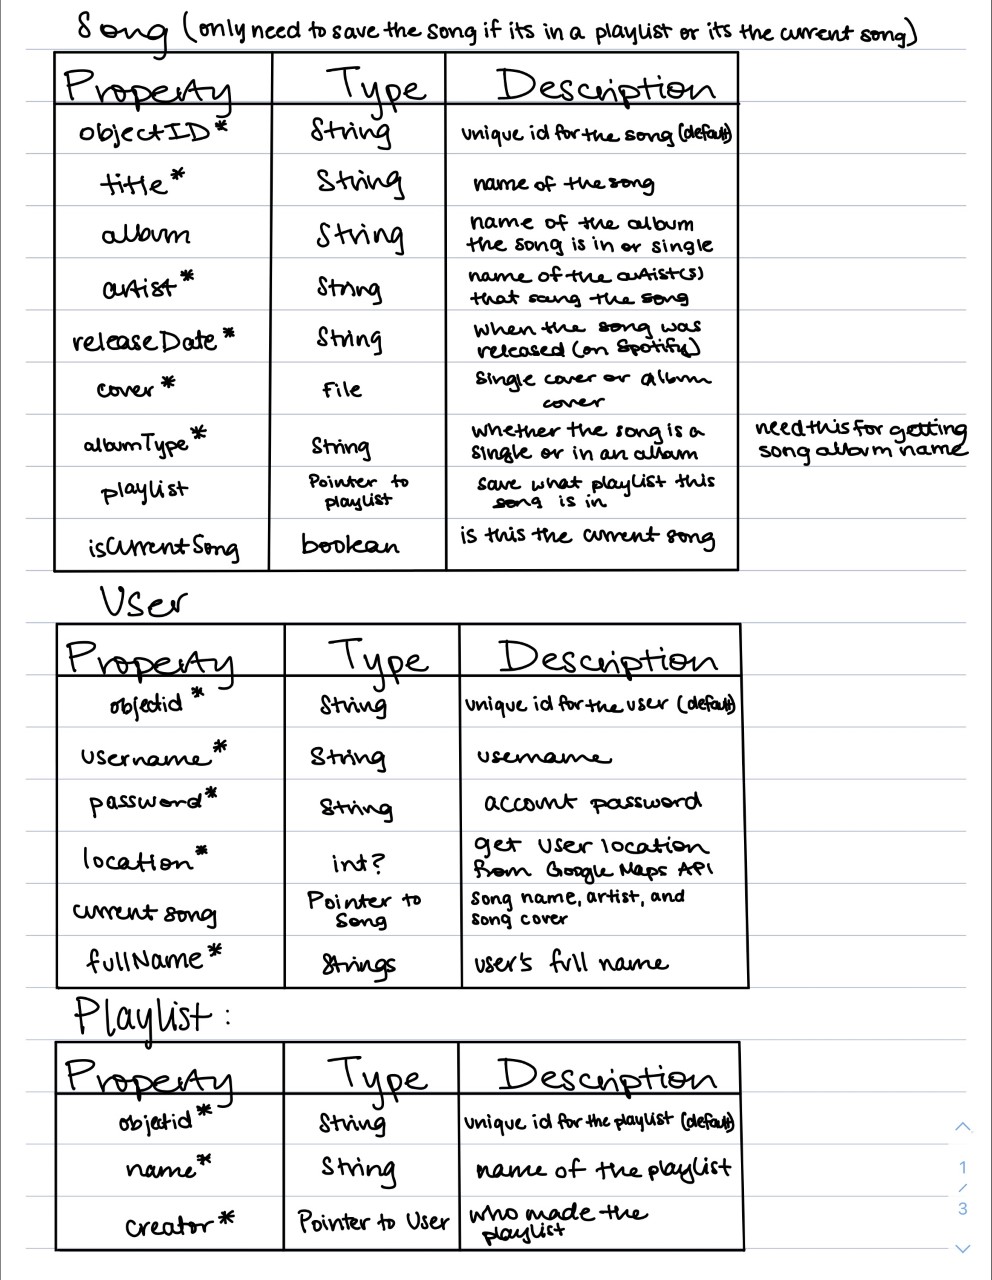 Song (only need to save the song if its in a playlist or its the current song)
Property Type Description
objectID* String unique id for the song (default)
title* String name of the song
album String name of the album
the song is in or single
artist* String name of the artist(s)
that sang the song
releaseDate* String when the song was
released (on Spotify)
cover* File single cover or album
cover
albumType* String whether the song is a
single or in an album
need this for getting
song album name
playlist Pointer to
playlist
save what playlist this
song is in
isCurrentSong boolean is this the current song
User
Property Type Description
objectid* String unique id for the user (default)
username* String username
password* String account password
location* int? get user location
from Google Maps API
current song Pointer to
Song
song name, artist, and
song cover
fullName* Strings user's full name
Playlist:
Property Type Description
objectid* String unique id for the playlist (default)
name* String name of the playlist
creator* Pointer to User who made the
playlist
1
/
3